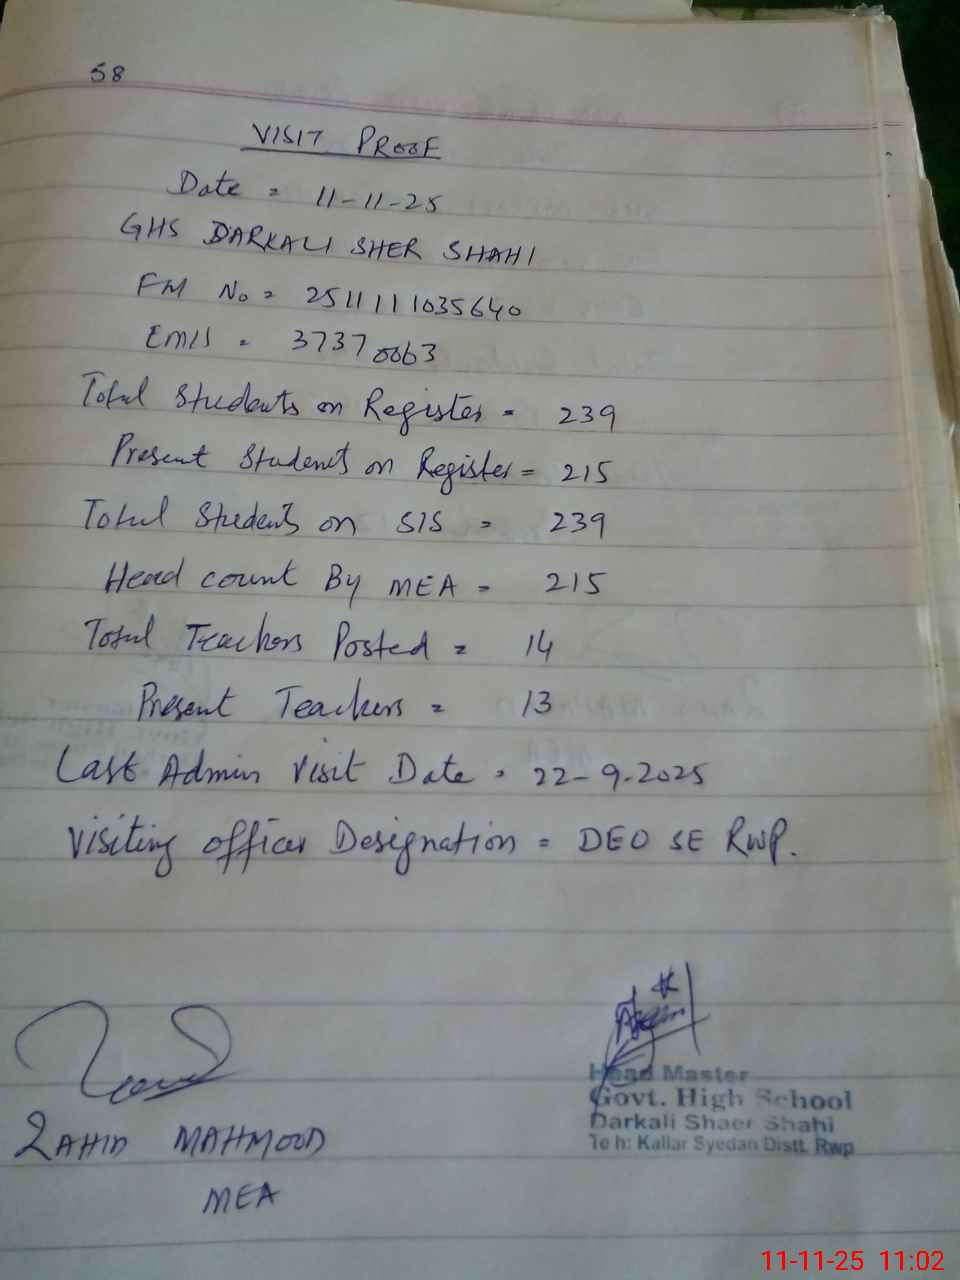 58
VISIT PROOF
Date = 11-11-25
GHS DARKALI SHER SHAHI
FM No = 2511111035640
EMIS = 37370063
Total Students on Register = 239
Present Students on Register = 215
Total Students on SIS = 239
Head count By MEA = 215
Total Teachers Posted = 14
Present Teachers = 13
Last Admin Visit Date = 22-9-2025
Visiting officer Designation = DEO SE RWP.
Head Master
Govt. High School
Darkali Shaer Shahi
Teh: Kallar Syedan Distt. Rwp
ZAHID MAHMOOD
MEA
11-11-25 11:02